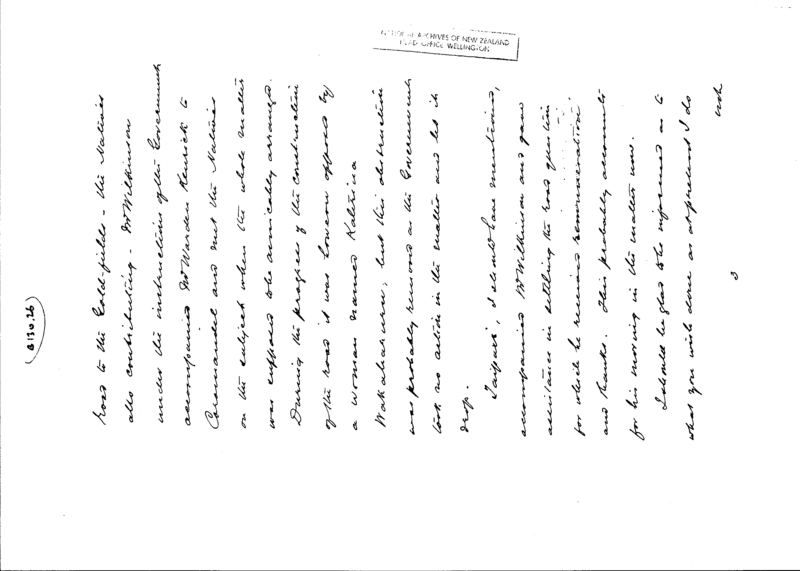 NATIONAL ARCHIVES OF NEW ZEALAND
HEAD OFFICE WELLINGTON
B130.26
road to the Gold-fields - the Natives
also contributing - Mr Wilkinson
under the instructions of the Government
accompanied Mr Warden Kenrick to
Coromandel and met the Natives
on the subject when the whole matter
was supposed to be amicably arranged.
During the progress of the construction
of the road it was however opposed by
a woman named Katerina
Wakaharuru, but this obstruction
was probably removed as the Government
took no action in the matter and let it
drop.
Taipari, I should have mentioned,
accompanied Mr Wilkinson and gave
assistance in settling the road question
for which he received remuneration
and thanks. This probably accounts
for his moving in the matter now.
I should be glad to be informed as to
what you wish done as at present I do
not
3